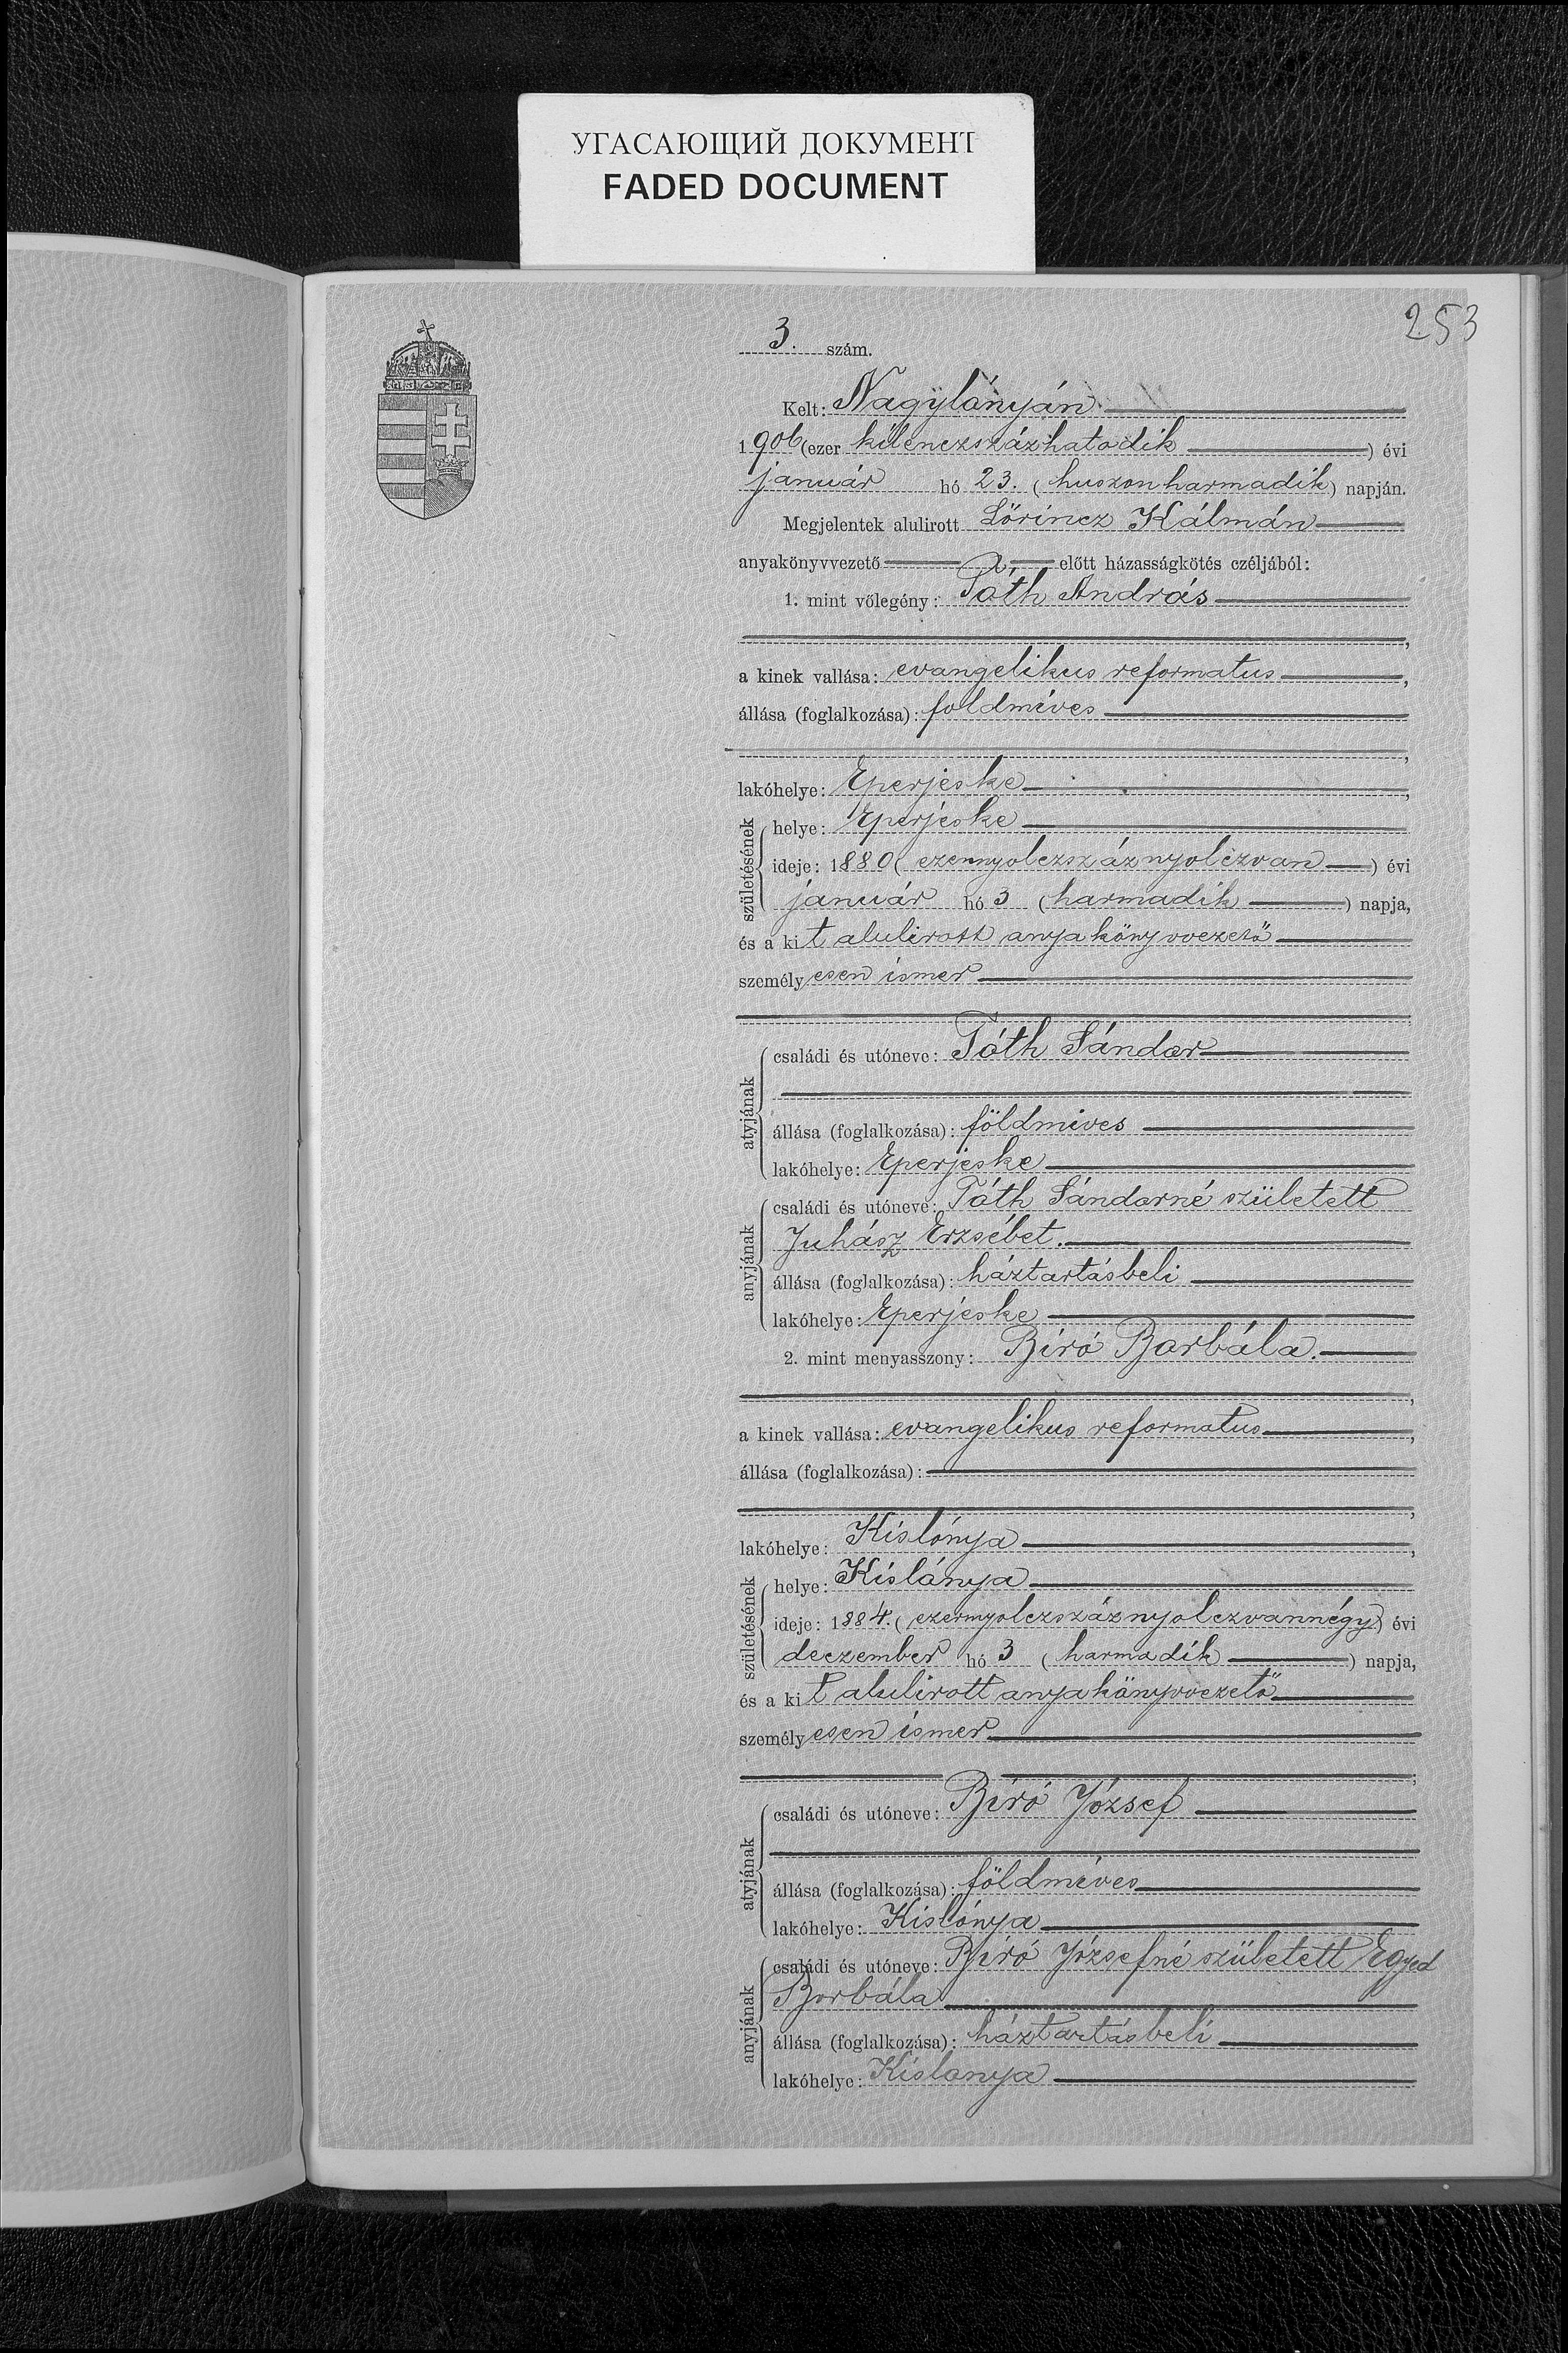 УГАСАЮЩИЙ ДОКУМЕНТ
FADED DOCUMENT
253
3. szám.
Kelt: Nagylónyán
1906 (ezer kilenczszázhatodik) évi
január hó 23. (huszonharmadik) napján.
Megjelentek alulirott Lőrincz Kálmán
anyakönyvvezető előtt házasságkötés czéljából:
1. mint vőlegény: Tóth András
a kinek vallása: evangelikus reformatus,
állása (foglalkozása): foldmíves
lakóhelye: Eperjeske,
születésének
helye: Eperjeske
ideje: 1880 (ezernyolczszáznyolczvan) évi
január hó 3 (harmadik) napja,
és a kit alulirott anyakönyvvezető
személyesen ismer
atyjának
családi és utóneve: Tóth Sándor
állása (foglalkozása): földmíves
lakóhelye: Eperjeske
anyjának
családi és utóneve: Tóth Sándorné született
Juhász Erzsébet.
állása (foglalkozása): háztartásbeli
lakóhelye: Eperjeske
2. mint menyasszony: Biró Borbála.
a kinek vallása: evangelikus reformatus,
állása (foglalkozása):
lakóhelye: Kislónya,
születésének
helye: Kislónya
ideje: 1884. (ezernyolczszáznyolczvannégy) évi
deczember hó 3 (harmadik) napja,
és a kit alulirott anyakönyvvezető
személyesen ismer
atyjának
családi és utóneve: Biró József
állása (foglalkozása): földmíves
lakóhelye: Kislónya
anyjának
családi és utóneve: Biró Józsefné született Egyed
Borbála
állása (foglalkozása): háztartásbeli
lakóhelye: Kislonya